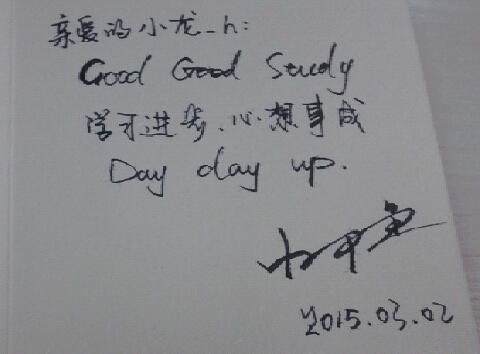 亲爱的小龙_h:
Good Good Study
学习进步、心想事成
Day day up.
小甲鱼
2015.03.02